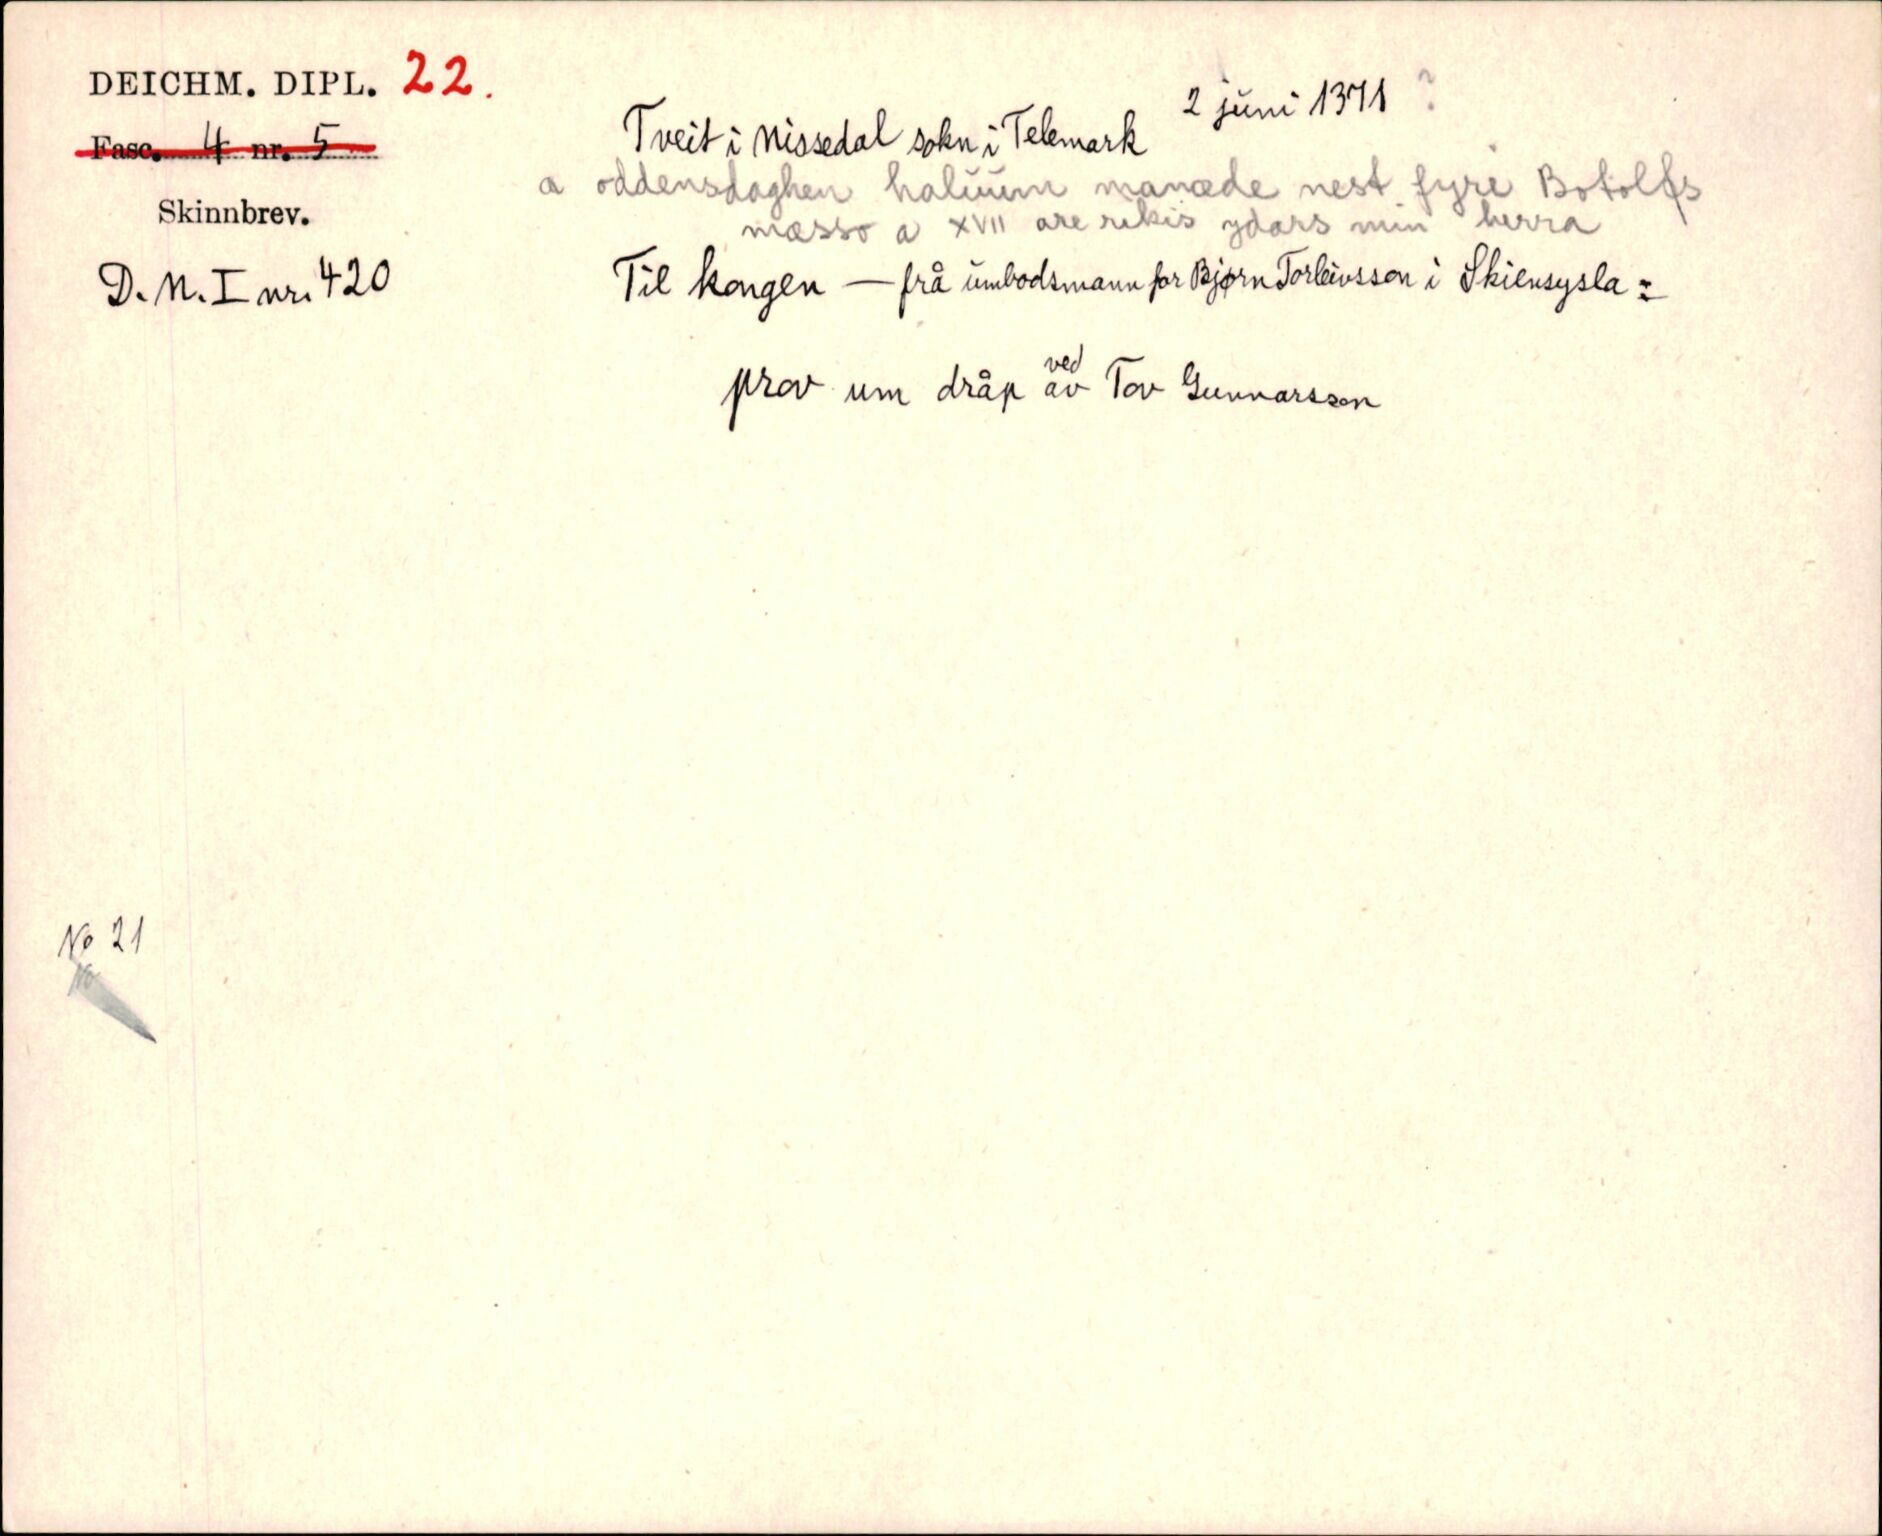 DEICHM. DIPL. 22.
Fasc. 4 nr. 5
Skinnbrev.
D. N. I nr. 420
2 juni 1371 ?
Tveit i Nissedal sokn i Telemark
a oddensdaghen haluum manæde nest fyri Botolfs
mæsso a XVII are rikis ydars min herra
Til kongen — frå umbodsmann for Bjørn Torleivsson i Skiensysla :
prov um dråp ved av Tov Gunnarsson
No 21
No